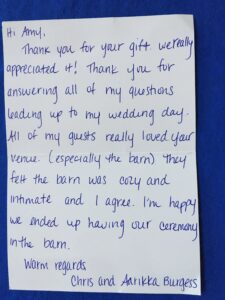 Hi Amy,
Thank you for your gift we really
appreciated it! Thank you for
answering all of my questions
leading up to my wedding day.
All of my guests really loved your
venue. (especially the barn) They
felt the barn was cozy and
intimate and I agree. I'm happy
we ended up having our ceremony
in the barn.
Warm regards
Chris and Aarikka Burgess